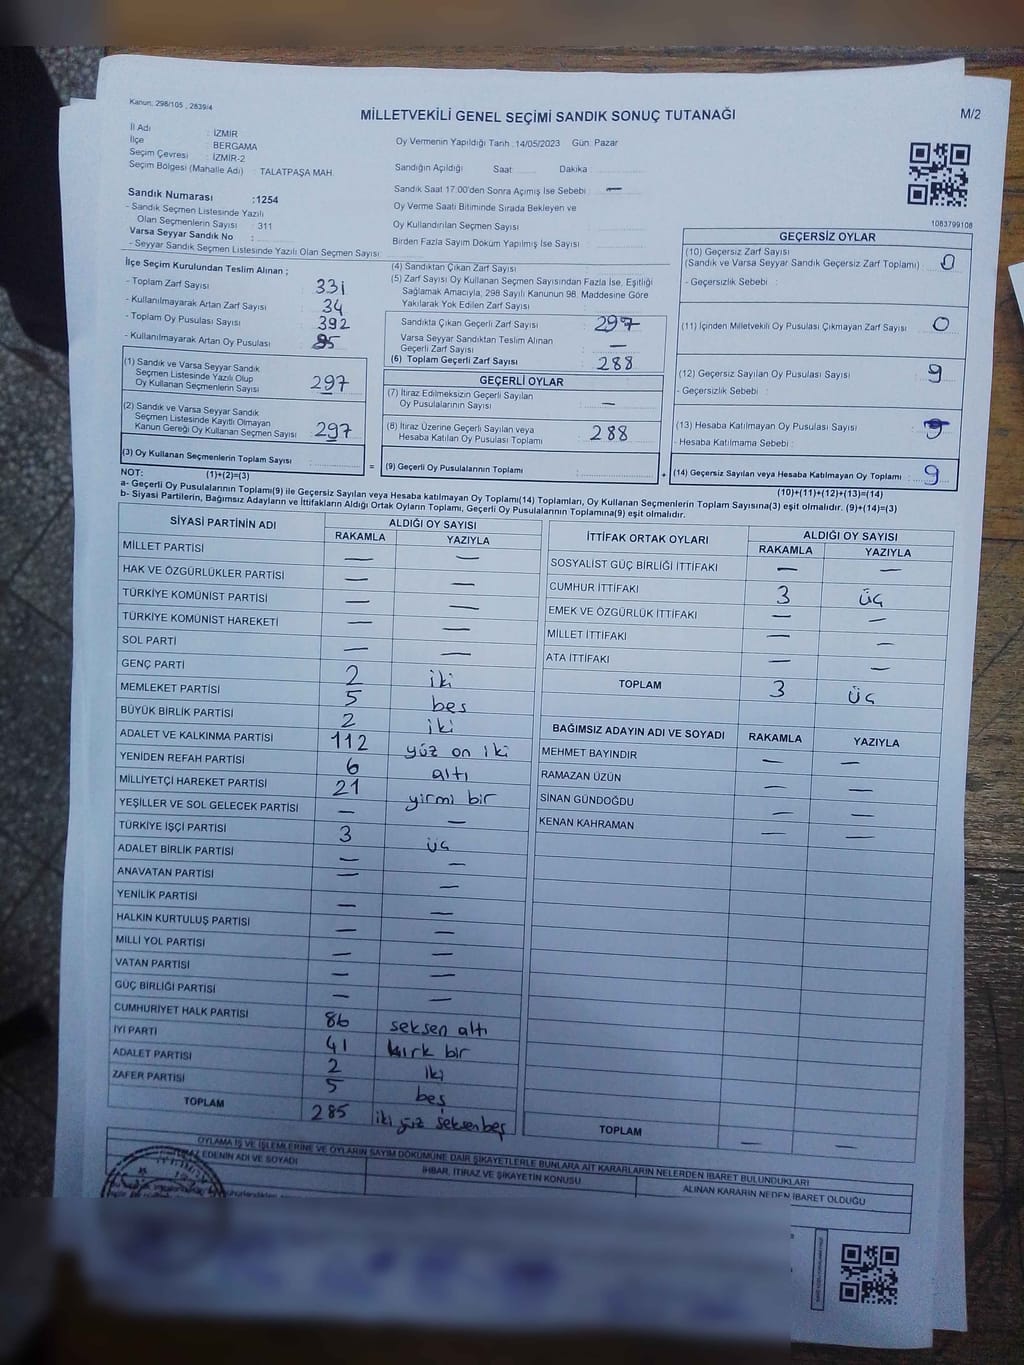 Kanun: 298/105 , 2839/4
MİLLETVEKİLİ GENEL SEÇİMİ SANDIK SONUÇ TUTANAĞI
M/2
İl Adı : İZMİR
İlçe : BERGAMA
Seçim Çevresi : İZMİR-2
Seçim Bölgesi (Mahalle Adı) : TALATPAŞA MAH.
Oy Vermenin Yapıldığı Tarih :14/05/2023 Gün: Pazar
Sandığın Açıldığı Saat: Dakika
Sandık Saat 17:00'den Sonra Açılmış İse Sebebi : —
Oy Verme Saati Bitiminde Sırada Bekleyen ve
Oy Kullandırılan Seçmen Sayısı
Birden Fazla Sayım Döküm Yapılmış İse Sayısı
1083799108
Sandık Numarası :1254
- Sandık Seçmen Listesinde Yazılı
Olan Seçmenlerin Sayısı : 311
Varsa Seyyar Sandık No :
- Seyyar Sandık Seçmen Listesinde Yazılı Olan Seçmen Sayısı
İlçe Seçim Kurulundan Teslim Alınan ;
- Toplam Zarf Sayısı 331
- Kullanılmayarak Artan Zarf Sayısı 34
- Toplam Oy Pusulası Sayısı 392
- Kullanılmayarak Artan Oy Pusulası 95
(1) Sandık ve Varsa Seyyar Sandık
Seçmen Listesinde Yazılı Olup
Oy Kullanan Seçmenlerin Sayısı 297
(2) Sandık ve Varsa Seyyar Sandık
Seçmen Listesinde Kayıtlı Olmayan
Kanun Gereği Oy Kullanan Seçmen Sayısı 297
(3) Oy Kullanan Seçmenlerin Toplam Sayısı :
(1)+(2)=(3)
(4) Sandıktan Çıkan Zarf Sayısı :
(5) Zarf Sayısı Oy Kullanan Seçmen Sayısından Fazla İse, Eşitliği
Sağlamak Amacıyla, 298 Sayılı Kanunun 98. Maddesine Göre
Yakılarak Yok Edilen Zarf Sayısı :
Sandıkta Çıkan Geçerli Zarf Sayısı : 297
Varsa Seyyar Sandıktan Teslim Alınan
Geçerli Zarf Sayısı : —
(6) Toplam Geçerli Zarf Sayısı : 288
GEÇERLİ OYLAR
(7) İtiraz Edilmeksizin Geçerli Sayılan
Oy Pusulalarının Sayısı : —
(8) İtiraz Üzerine Geçerli Sayılan veya
Hesaba Katılan Oy Pusulası Toplamı : 288
= (9) Geçerli Oy Pusulalarının Toplamı :
GEÇERSİZ OYLAR
(10) Geçersiz Zarf Sayısı
(Sandık ve Varsa Seyyar Sandık Geçersiz Zarf Toplamı) : 0
- Geçersizlik Sebebi :
(11) İçinden Milletvekili Oy Pusulası Çıkmayan Zarf Sayısı : 0
(12) Geçersiz Sayılan Oy Pusulası Sayısı : 9
- Geçersizlik Sebebi :
(13) Hesaba Katılmayan Oy Pusulası Sayısı :
- Hesaba Katılmama Sebebi :
+ (14) Geçersiz Sayılan veya Hesaba Katılmayan Oy Toplamı : 9
(10)+(11)+(12)+(13)=(14)
NOT:
a- Geçerli Oy Pusulalarının Toplamı(9) ile Geçersiz Sayılan veya Hesaba katılmayan Oy Toplamı(14) Toplamları, Oy Kullanan Seçmenlerin Toplam Sayısına(3) eşit olmalıdır. (9)+(14)=(3)
b- Siyasi Partilerin, Bağımsız Adayların ve İttifakların Aldığı Ortak Oyların Toplamı, Geçerli Oy Pusulalarının Toplamına(9) eşit olmalıdır.
SİYASİ PARTİNİN ADI ALDIĞI OY SAYISI
RAKAMLA YAZIYLA
MİLLET PARTİSİ — —
HAK VE ÖZGÜRLÜKLER PARTİSİ — —
TÜRKİYE KOMÜNİST PARTİSİ — —
TÜRKİYE KOMÜNİST HAREKETİ — —
SOL PARTİ — —
GENÇ PARTİ 2 iki
MEMLEKET PARTİSİ 5 beş
BÜYÜK BİRLİK PARTİSİ 2 iki
ADALET VE KALKINMA PARTİSİ 112 yüz on iki
YENİDEN REFAH PARTİSİ 6 altı
MİLLİYETÇİ HAREKET PARTİSİ 21 yirmi bir
YEŞİLLER VE SOL GELECEK PARTİSİ — —
TÜRKİYE İŞÇİ PARTİSİ 3 üç
ADALET BİRLİK PARTİSİ — —
ANAVATAN PARTİSİ — —
YENİLİK PARTİSİ — —
HALKIN KURTULUŞ PARTİSİ — —
MİLLİ YOL PARTİSİ — —
VATAN PARTİSİ — —
GÜÇ BİRLİĞİ PARTİSİ — —
CUMHURİYET HALK PARTİSİ 86 seksen altı
İYİ PARTİ 41 kırk bir
ADALET PARTİSİ 2 iki
ZAFER PARTİSİ 5 beş
TOPLAM 285 iki yüz seksen beş
İTTİFAK ORTAK OYLARI ALDIĞI OY SAYISI
RAKAMLA YAZIYLA
SOSYALİST GÜÇ BİRLİĞİ İTTİFAKI — —
CUMHUR İTTİFAKI 3 üç
EMEK VE ÖZGÜRLÜK İTTİFAKI — —
MİLLET İTTİFAKI — —
ATA İTTİFAKI — —
TOPLAM 3 üç
BAĞIMSIZ ADAYIN ADI VE SOYADI RAKAMLA YAZIYLA
MEHMET BAYINDIR — —
RAMAZAN ÜZÜN — —
SİNAN GÜNDOĞDU — —
KENAN KAHRAMAN — —
TOPLAM — —
OYLAMA İŞ VE İŞLEMLERİNE VE OYLARIN SAYIM DÖKÜMÜNE DAİR ŞİKAYETLERLE BUNLARA AİT KARARLARIN NELERDEN İBARET BULUNDUKLARI
EDENİN ADI VE SOYADI
İHBAR, İTİRAZ VE ŞİKAYETİN KONUSU
ALINAN KARARIN NEDEN İBARET OLDUĞU